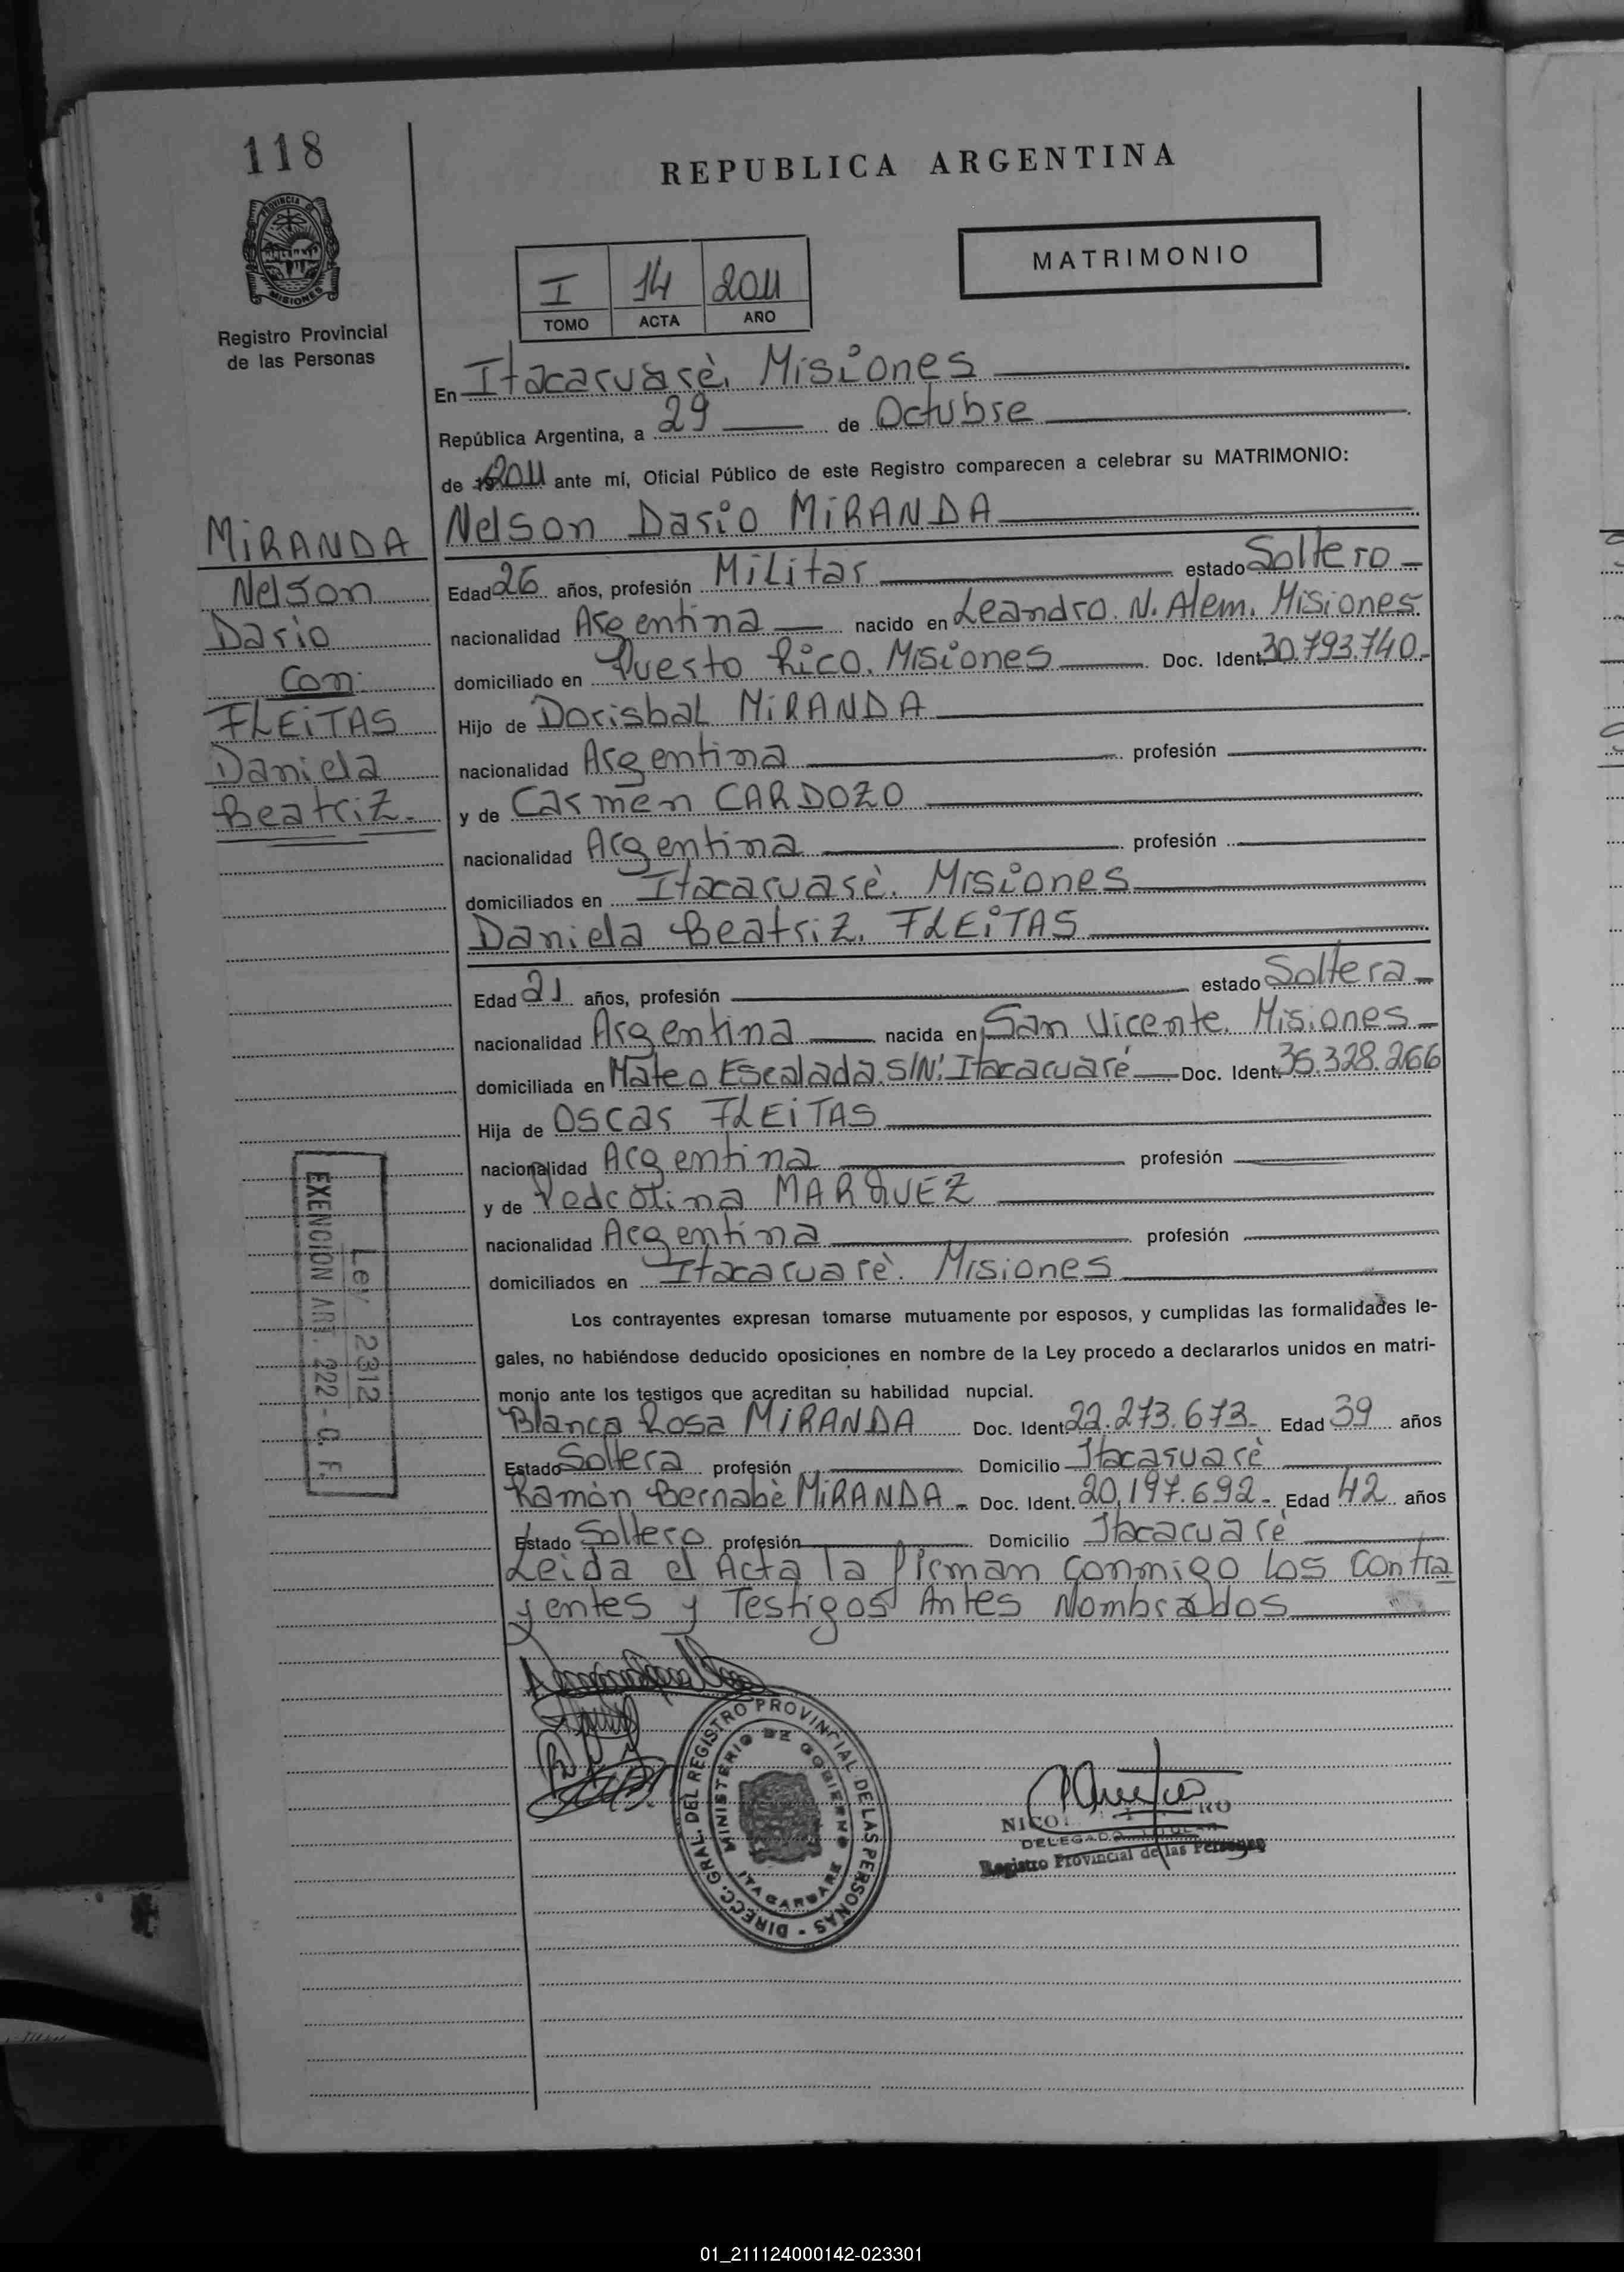 118
REPUBLICA ARGENTINA
PROVINCIA DE
MISIONES
Registro Provincial
de las Personas
I 14 2011
TOMO ACTA AÑO
MATRIMONIO
En Itacaruarè, Misiones
República Argentina, a 29 de Octubre
de 2011 ante mí, Oficial Público de este Registro comparecen a celebrar su MATRIMONIO:
Nelson Dario MiRANDA
MiRANDA
Nelson
Dario
Con
FLEiTAS
Daniela
Beatriz.
Edad 26 años, profesión Militar estado Soltero
nacionalidad Argentina nacido en Leandro. N. Alem. Misiones
domiciliado en Puesto Rico. Misiones Doc. Ident. 30.793.740
Hijo de Dorisbal MiRANDA
nacionalidad Argentina profesión
y de Carmen CARDOZO
nacionalidad Argentina profesión
domiciliados en Itacaruarè. Misiones
Daniela Beatriz. FLEiTAS
Edad 21 años, profesión estado Soltera
nacionalidad Argentina nacida en San Vicente. Misiones
domiciliada en Mateo Escalada. S/N: Itacaruaré Doc. Ident. 35.328.266
Hija de Oscar FLEiTAS
nacionalidad Argentina profesión
y de Pedrolina MARQUEZ
nacionalidad Argentina profesión
domiciliados en Itacaruarè. Misiones
Los contrayentes expresan tomarse mutuamente por esposos, y cumplidas las formalidades le-
gales, no habiéndose deducido oposiciones en nombre de la Ley procedo a declararlos unidos en matri-
monio ante los testigos que acreditan su habilidad nupcial.
Blanca Rosa MiRANDA Doc. Ident. 22.273.673 Edad 39 años
Estado Soltera profesión Domicilio Itacaruarè
Ramòn Bernabè MiRANDA Doc. Ident. 20.197.692 Edad 42 años
Estado Soltero profesión Domicilio Itacaruarè
Leida el Acta la firman conmigo los Contra
yentes y Testigos Antes Nombrados
Ley 2312
EXENCION ART. 222 - C. F.
DIRECC. GRAL. DEL REGISTRO PROVINCIAL DE LAS PERSONAS -
MINISTERIO DE GOBIERNO
ITACARUARE
DELEGADO TITULAR
Registro Provincial de las Personas
01_211124000142-023301